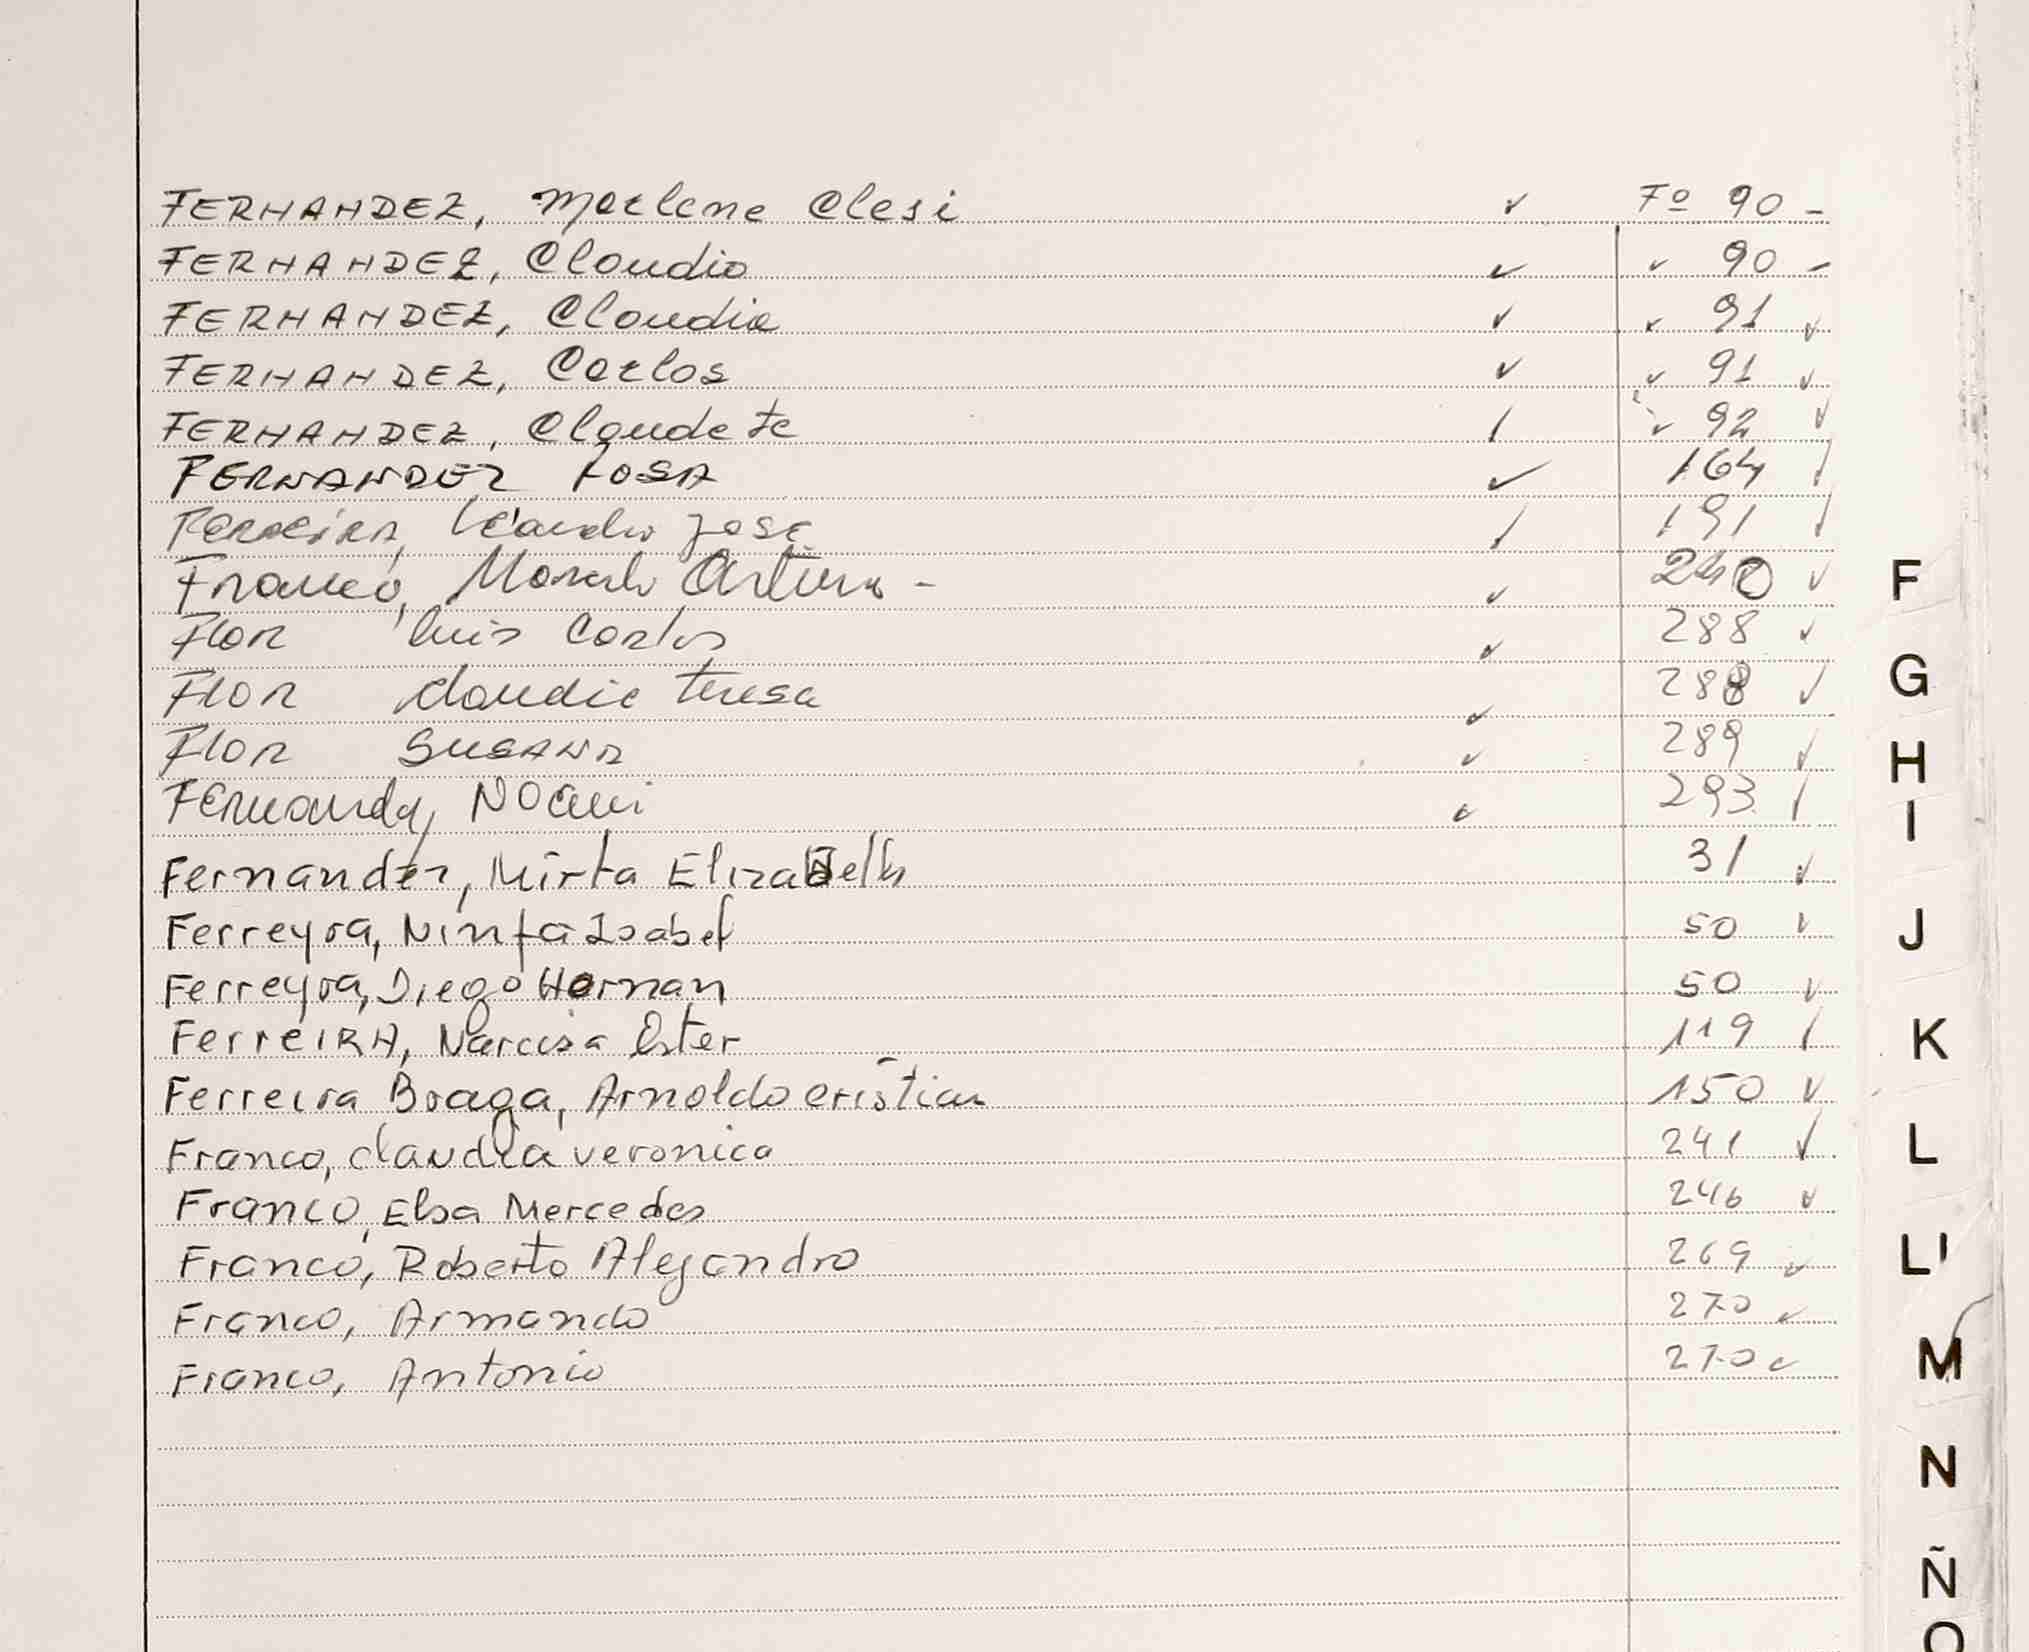 FERNANDEZ, Marlene Clesi ✓ Fº 90 -
FERNANDEZ, Claudio ✓ ✓ 90 -
FERNANDEZ, Claudia ✓ ✓ 91 ✓
FERNANDEZ, Carlos ✓ ✓ 91 ✓
FERNANDEZ, Claudete ✓ ✓ 92 ✓
FERNANDEZ ROSA ✓ 164 ✓
FERREIRA, Leandro José ✓ 191 ✓
Franco, Arturo - ✓ 240 ✓
FLOR Luis Carlos ✓ 288 ✓
FLOR Claudia Teresa ✓ 288 ✓
FLOR SUSANA ✓ 289 ✓
Noemi ✓ 293 ✓
Fernandez, Mirta Elizabeth 31 ✓
Ferreyra, Ninfa Isabel 50 ✓
Ferreyra, Diego Hernan 50 ✓
FerreIRA, Narcisa Ester 119 ✓
Ferreira Braga, Arnoldo Cristian 150 ✓
Franco, claudia veronica 241 ✓
Franco, Elsa Mercedes 246 ✓
Franco, Roberto Alejandro 269 ✓
Franco, Armando 270 ✓
Franco, Antonio 270 ✓
F
G
H
I
J
K
L
LL
M
N
Ñ
O